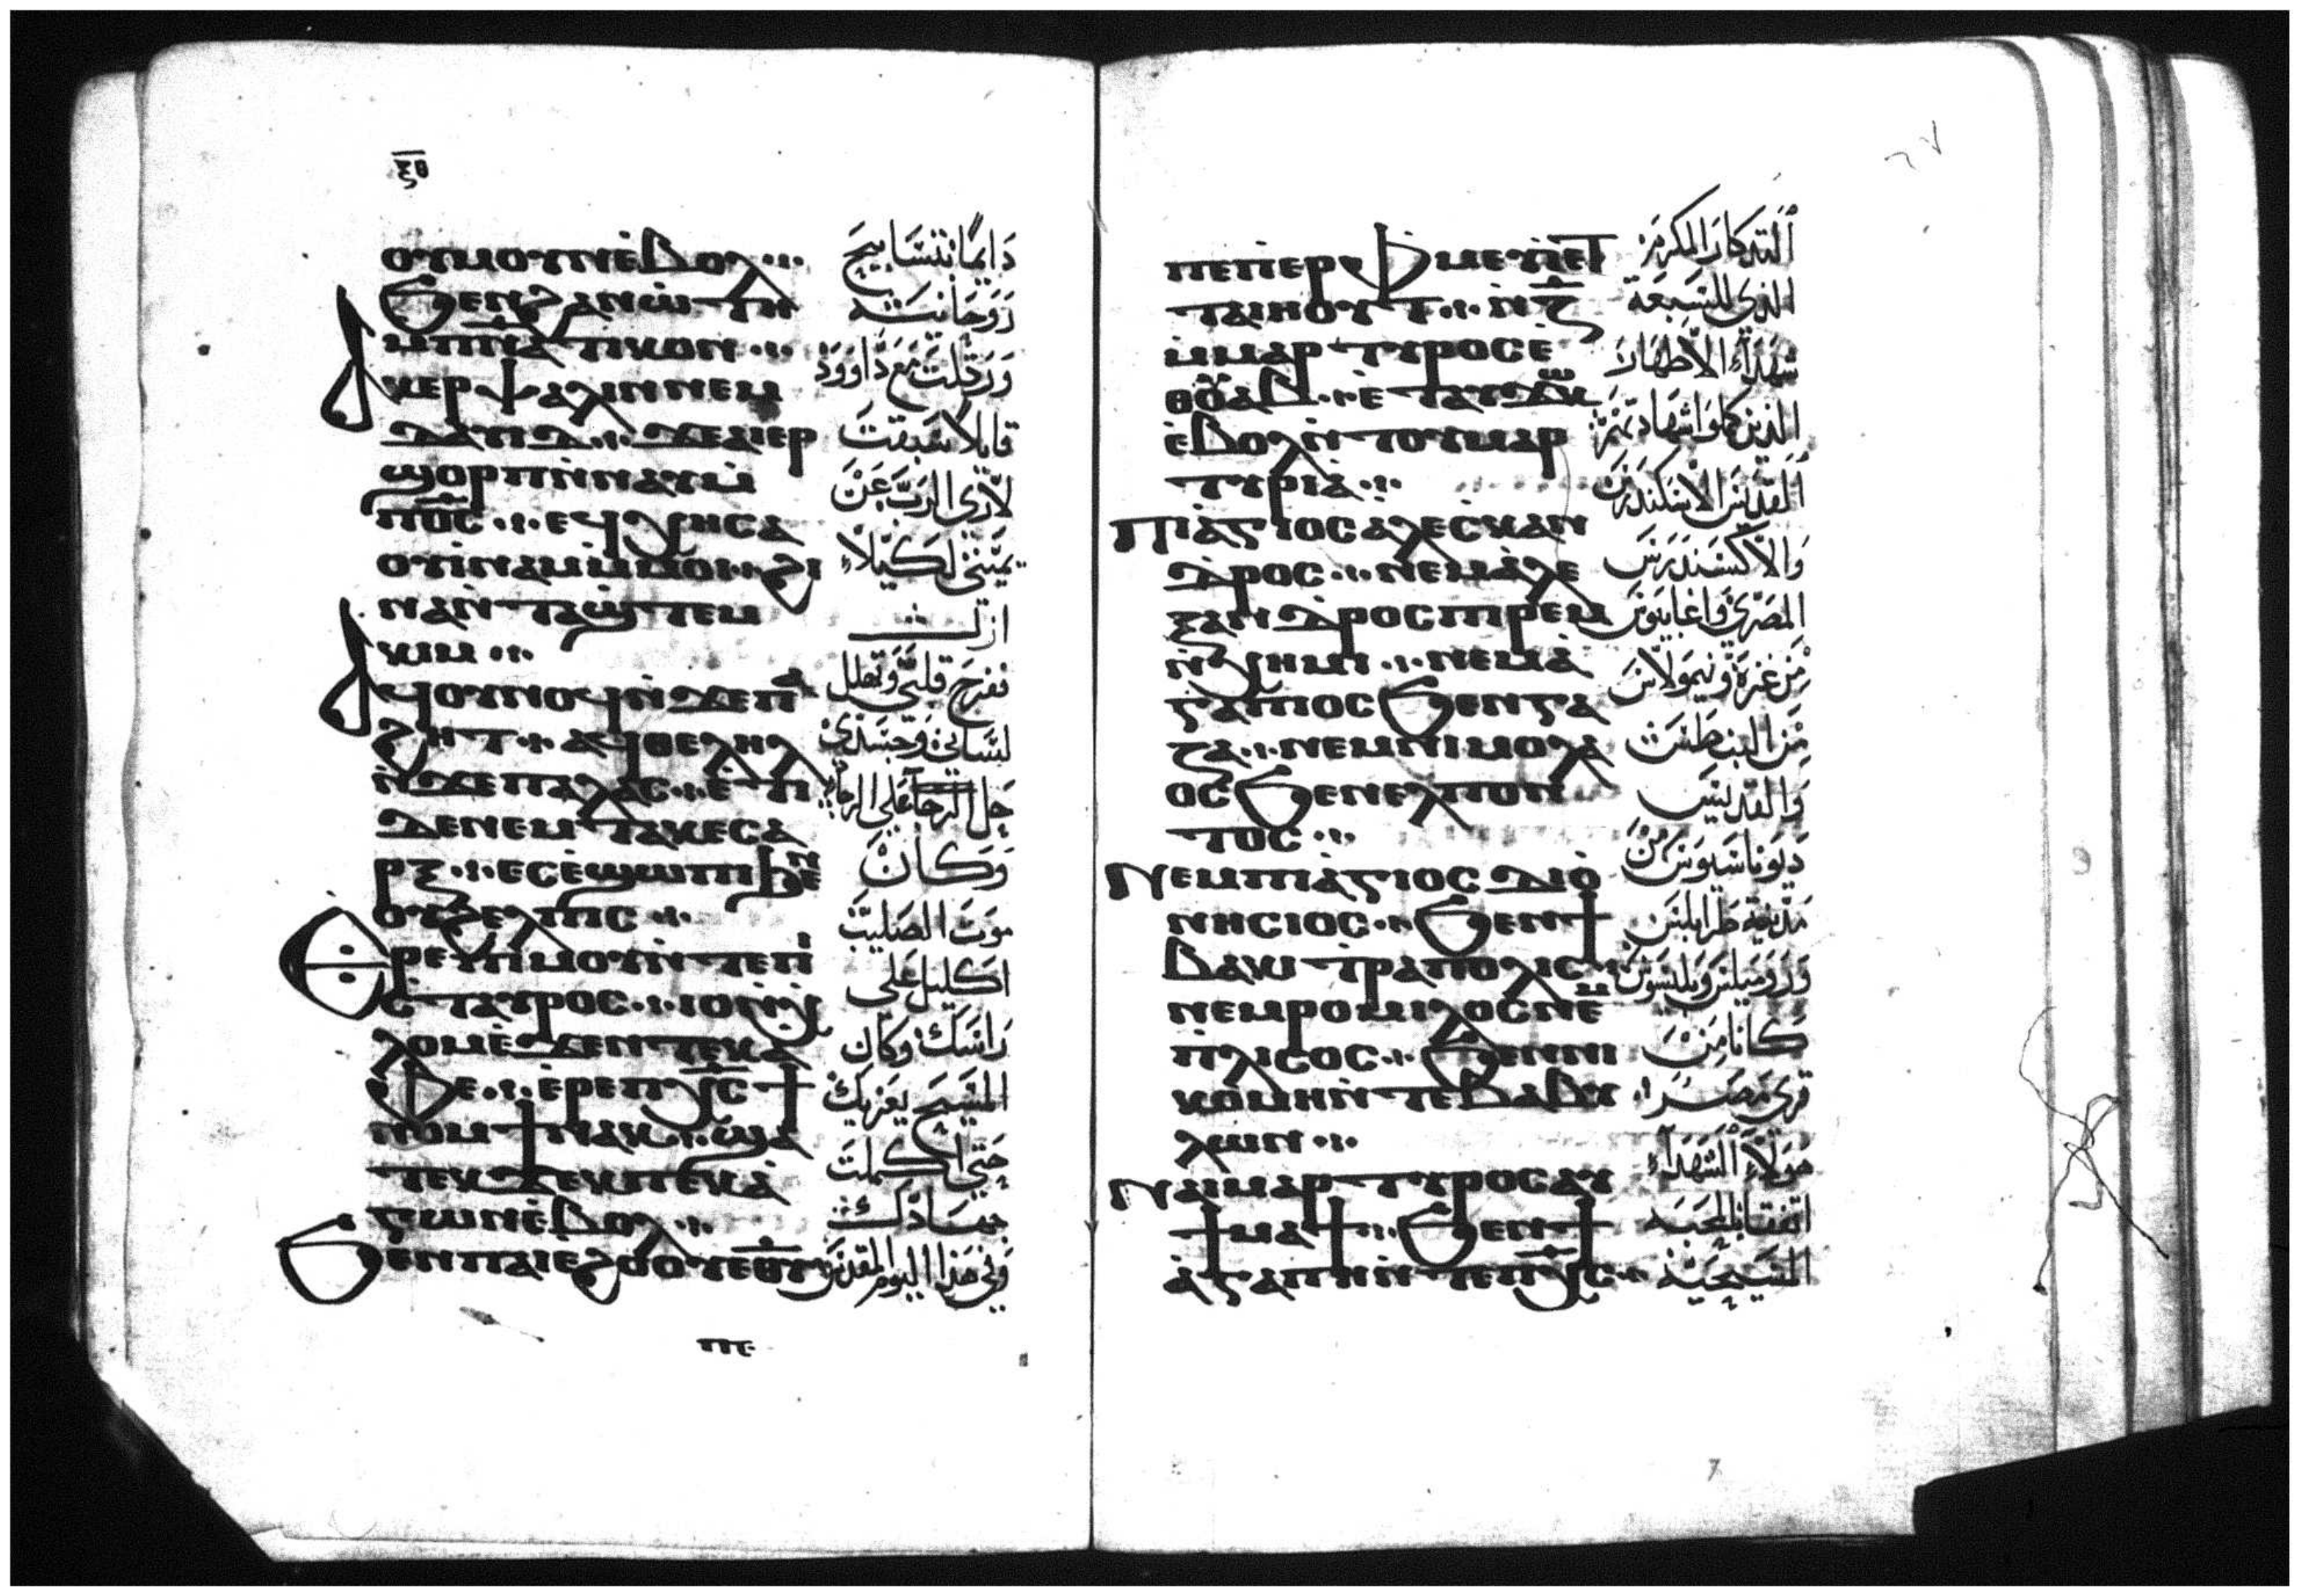 ⲝⲑ
ⲟⲩⲙⲟⲩⲛⲉ̀ⲃⲟⲗ ⁖
ϧⲉⲛϩⲁⲛⲱ̀ⲧⲏ
ⲙⲡⲛ̅ⲁ̅ⲧⲓⲕⲟⲛ ⁖
ⲁⲕⲉⲣⲯⲁⲗⲓⲛⲛⲉⲙ
ⲇⲁⲩⲓⲇ ⁖ ϫⲉⲁⲓⲉⲣ
ϣⲟⲣⲡⲛ̀ⲛⲁⲩⲙ̀
ⲡⲟ̅ⲥ̅ ⁖ ⲉϥⲭⲏⲥⲁ
ⲟⲩⲓ̀ⲛⲁⲙⲙ̀ⲙⲟⲓ ⁖ ϩⲓ
ⲛⲁⲛ̀ⲧⲁϣ̀ⲧⲉⲙ
ⲕⲓⲙ ⁖
ⲁϥⲟⲩⲛⲟϥⲛ̀ϫⲉⲡⲁ
ϩⲏⲧ ⁖ ⲁϥⲑⲉⲗⲏⲗ
ⲛ̀ϫⲉⲡⲁⲗⲁⲥ ⁖ ⲉ̀ⲧⲓ
ⲇⲉⲛⲉⲙⲧⲁⲕⲉⲥⲁ
ⲣⲝ ⁖ ⲉⲥⲉ̀ϣⲱⲡⲓϧⲉⲛ
ⲟⲩϩⲉⲗⲡⲓⲥ ⁖
ⲉ̀ⲣⲉⲫⲙⲟⲩⲛ̀ⲧⲉⲡⲓ
ⲥ̀ⲧⲁⲩⲣⲟⲥ ⁖ ⲓⲟⲓⲛ̀ⲭ
ⲗⲟⲙⲉ̀ϫⲉⲛⲧⲉⲕⲁ
ⲫⲉ ⁖ ⲉ̀ⲣⲉⲡⲭ̅ⲥ̅ϯ
ⲛⲟⲙϯⲛⲁⲕ ⁖ ϣⲁ
ⲧⲉⲕϫⲉⲕⲡⲉⲕⲁ̀
ⲅⲱⲛⲉ̀ⲃⲟⲗ ⁖
ϧⲉⲛⲡⲁⲓⲉϩⲟⲟⲩⲉⲑ̅ⲩ̅
ⲡⲉ
دايما بتسابيح
روحانية
ورتلت مع داوود
قايلا سبقت
لاري الرب عن
يميني لكيلا
ازل
ففرح قلبي وتهلل
لساني وجسدي
حل علي الرجاء
وكان
موت الصليب
اكليل علي
راسك وكان
المسيح يعزيك
حتي اكملت
جهادك
وفي هذا اليوم المقدس
ⲡⲉⲡⲉⲣⲫⲙⲉⲩⲓ̀ⲉⲧ
ⲧⲁⲓⲏⲟⲩⲧ ⁖ ⲛ̀ⲍ̅
ⲙⲙⲁⲣⲧⲩⲣⲟⲥⲉ̀
ⲑⲟⲩⲁⲃ ⁖ ⲉⲧⲁⲩϫⲱⲕ
ⲉ̀ⲃⲟⲗⲛ̀ⲧⲟⲩⲙⲁⲣ
ⲧⲩⲣⲓⲁ̀ ⁖
ⲡⲓⲁ̀ⲅⲓⲟⲥⲁ̀ⲗⲉⲝ̀ⲕⲁⲛ
ⲇⲣⲟⲥ ⁖ ⲛⲉⲙⲁ̀ⲗⲉ
ⲝⲁⲛⲇⲣⲟⲥⲡⲓⲣⲉⲙ
ⲛ̀ⲭⲏⲙⲓ ⁖ ⲛⲉⲙⲁ̀
ⲅⲁⲡⲓⲟⲥϧⲉⲛⲅⲁ
ⲍⲁ ⁖ ⲛⲉⲙⲛⲓⲙⲟⲗⲁ
ⲟⲥϧⲉⲛⲉⲗⲡⲟⲛ
ⲧⲟⲥ ⁖
ⲛⲉⲙⲡⲓⲁ̀ⲅⲓⲟⲥⲇⲓⲟ̀
ⲛⲏⲥⲓⲟⲥ ⁖ ϧⲉⲛϯ
ⲃⲁⲕⲓⲧⲣⲁⲡⲟⲗⲓⲥ ⁖
ⲛⲉⲙⲣⲟⲙⲓⲗⲟⲥⲛⲉⲙ
ⲡⲗⲓⲥⲟⲥ ⁖ ϧⲉⲛⲛⲓ
ⲕⲟⲙⲏⲛ̀ⲧⲉⲃⲁⲃⲩ
ⲗⲱⲛ ⁖
ⲛⲁⲓⲙⲁⲣⲧⲩⲣⲟⲥⲁⲩ
ϯⲙⲁϯ ⁖ ϧⲉⲛϯ
ⲁ̀ⲅⲁⲡⲏⲛ̀ⲧⲉⲡⲭ̅ⲥ̅ ⁖
التدكار المكرم
الذي للسبعة
شهداء الاطهار
الذين كملوا شهادتهم
القديس الاسكندرس
والاكسندرس
المصري واغابيوس
من غزة ونيمولاس
من البنطس
والقديس
ديوناسيوس من
مدينة طرابلس
ورومیلس وبلیسوس
كانا من
قري مصر
هولاء الشهداء
اتفقا بالمحبه
المسيحية